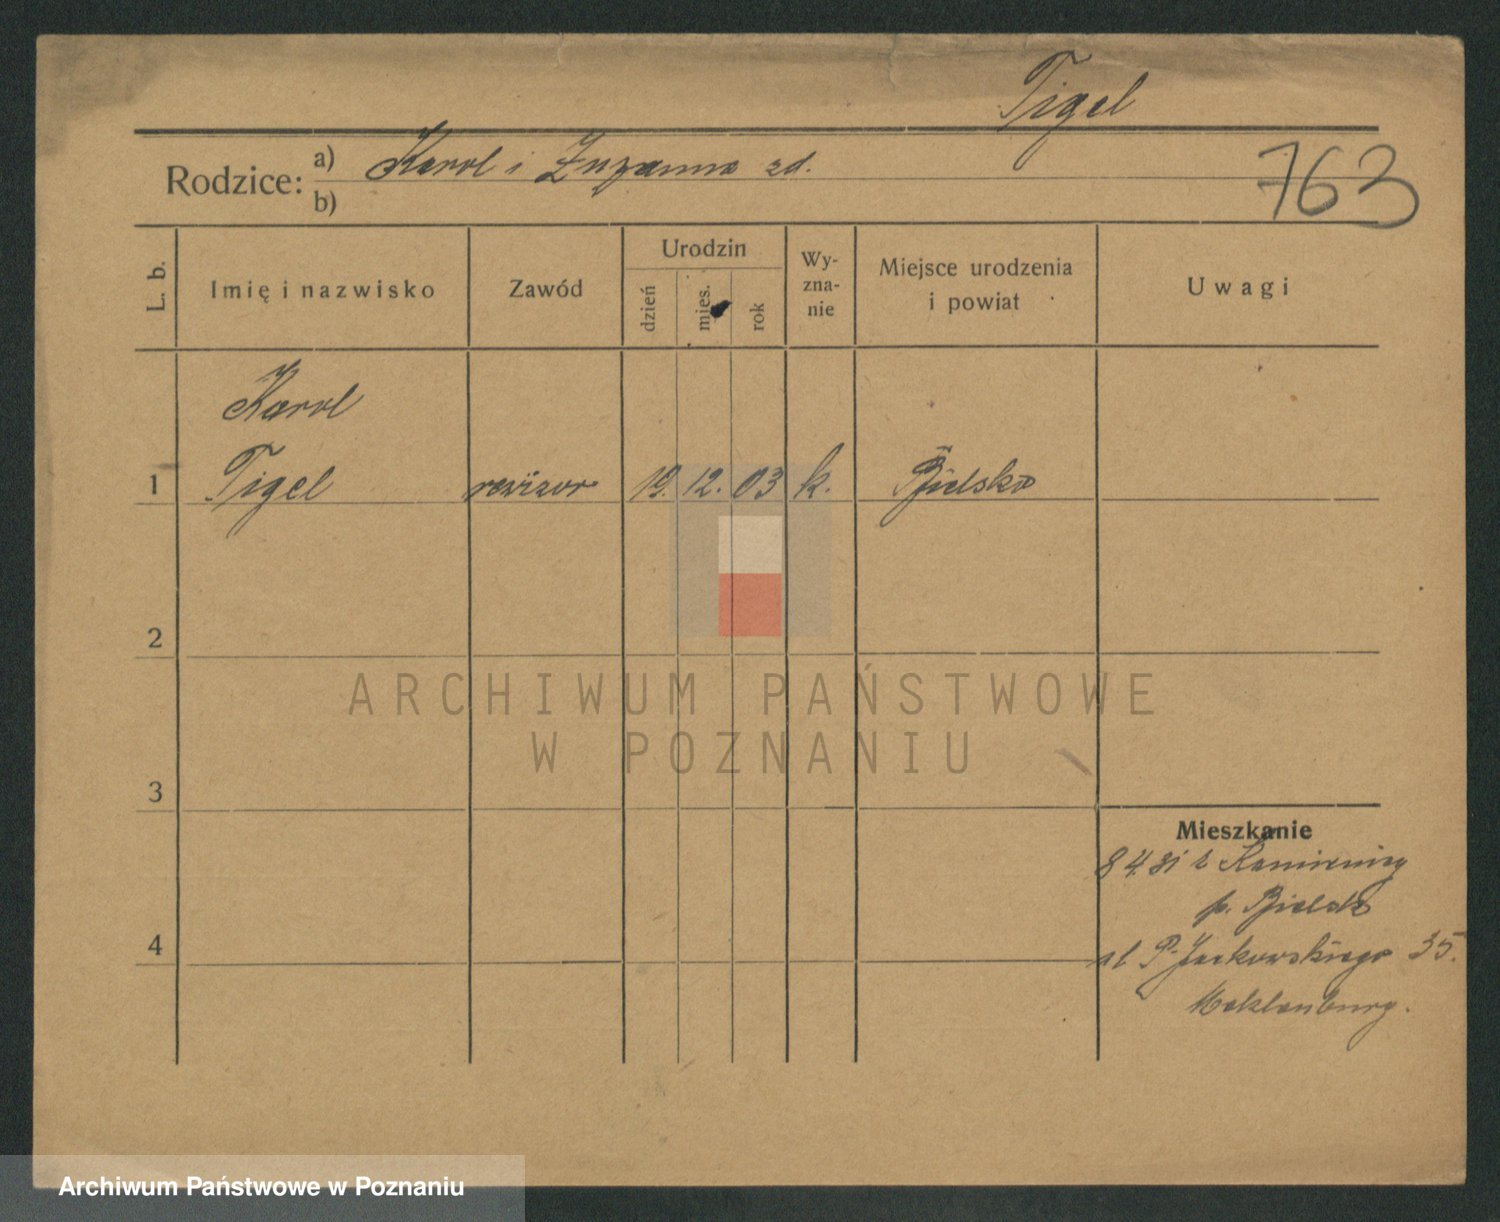 Tigel
Rodzice: a) Karol i Zuzanna zd.
b)
763
L. b.
Imię i nazwisko
Zawód
Urodzin
dzień
mies.
rok
Wy-
zna-
nie
Miejsce urodzenia
i powiat
Uwagi
Karol
1 Tigel rewizor 19. 12. 03 k. Bielsko
2
3
4
Mieszkanie
8 4.31 z Kamienicy
p. Bielsko
ul P. Jackowskiego 35.
Meklenburg.
ARCHIWUM PAŃSTWOWE
W POZNANIU
Archiwum Państwowe w Poznaniu